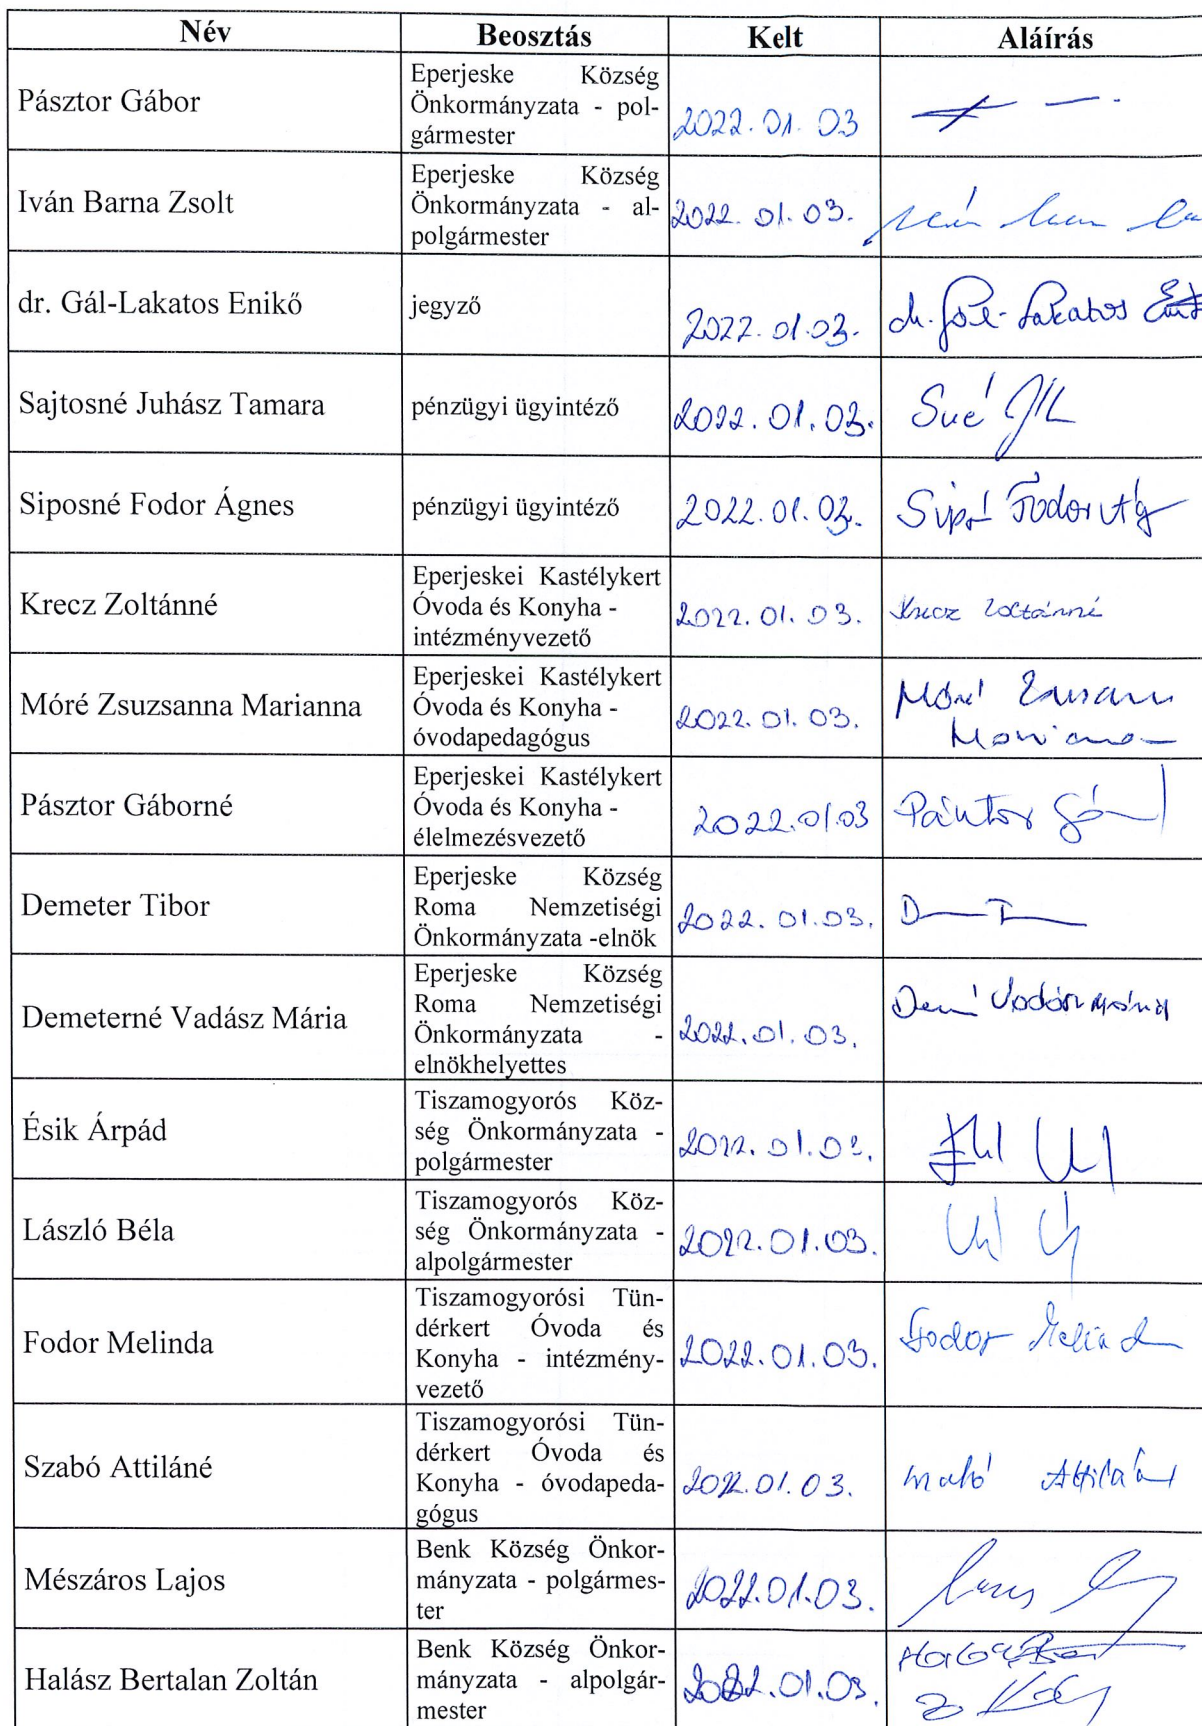 Név Beosztás Kelt Aláírás
Pásztor Gábor
Eperjeske Község
Önkormányzata - pol-
gármester
2022. 01. 03
Iván Barna Zsolt
Eperjeske Község
Önkormányzata - al-
polgármester
2022. 01. 03.
dr. Gál-Lakatos Enikő
jegyző
2022. 01. 03.
dr. Gál-Lakatos
Sajtosné Juhász Tamara
pénzügyi ügyintéző
2022. 01. 03.
Siposné Fodor Ágnes
pénzügyi ügyintéző
2022. 01. 03.
Fodor
Krecz Zoltánné
Eperjeskei Kastélykert
Óvoda és Konyha -
intézményvezető
2022. 01. 03.
Krecz Zoltánné
Móré Zsuzsanna Marianna
Eperjeskei Kastélykert
Óvoda és Konyha -
óvodapedagógus
2022. 01. 03.
Móré
Pásztor Gáborné
Eperjeskei Kastélykert
Óvoda és Konyha -
élelmezésvezető
2022. 01. 03
Pásztor
Demeter Tibor
Eperjeske Község
Roma Nemzetiségi
Önkormányzata -elnök
2022. 01. 03.
Demeterné Vadász Mária
Eperjeske Község
Roma Nemzetiségi
Önkormányzata -
elnökhelyettes
2022. 01. 03.
Ésik Árpád
Tiszamogyorós Köz-
ség Önkormányzata -
polgármester
2022. 01. 03.
László Béla
Tiszamogyorós Köz-
ség Önkormányzata -
alpolgármester
2022. 01. 03.
Fodor Melinda
Tiszamogyorósi Tün-
dérkert Óvoda és
Konyha - intézmény-
vezető
2022. 01. 03.
Fodor
Szabó Attiláné
Tiszamogyorósi Tün-
dérkert Óvoda és
Konyha - óvodapeda-
gógus
2022. 01. 03.
Szabó Attiláné
Mészáros Lajos
Benk Község Önkor-
mányzata - polgármes-
ter
2022. 01. 03.
Halász Bertalan Zoltán
Benk Község Önkor-
mányzata - alpolgár-
mester
2022. 01. 03.